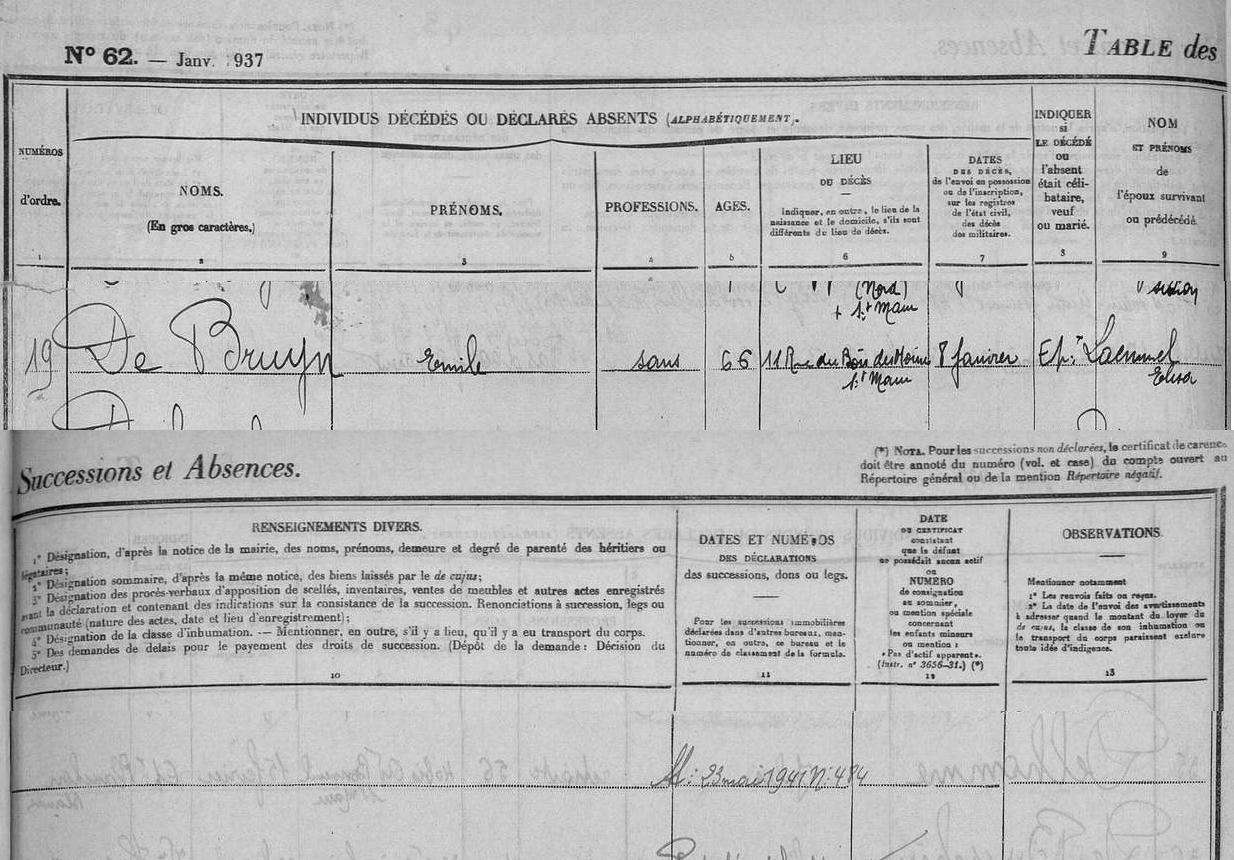 N° 62. — Janv. 1937
TABLE des
INDIVIDUS DÉCÉDÉS OU DÉCLARÉS ABSENTS (ALPHABÉTIQUEMENT).
NUMÉROS
d'ordre.
1
NOMS.
(En gros caractères.)
2
PRÉNOMS.
3
PROFESSIONS.
4
AGES.
5
LIEU
DU DÉCÈS
—
Indiquer, en outre, le lieu de la
naissance et le domicile, s'ils sont
différents du lieu de décès.
6
DATES
DES DÉCÈS,
de l'envoi en possession
ou de l'inscription,
sur les registres
de l'état civil,
des décès
des militaires.
7
INDIQUER
si
LE DÉCÉDÉ
ou
l'absent
était céli-
bataire,
veuf
ou marié.
8
NOM
ET PRÉNOMS
de
l'époux survivant
ou prédécédé.
9
(Nord)
+ St Maur
19 De Bruyn Emile sans 66 11 Rue du Bois des Moines 8 Janvier Ep.x Laemmel
St Maur Elisa
Successions et Absences.
(*) NOTA. Pour les successions non déclarées, le certificat de carence
doit être annoté du numéro (vol. et case) du compte ouvert au
Répertoire général ou de la mention Répertoire négatif.
RENSEIGNEMENTS DIVERS.
1° Désignation, d'après la notice de la mairie, des noms, prénoms, demeure et degré de parenté des héritiers ou
légataires;
2° Désignation sommaire, d'après la même notice, des biens laissés par le de cujus;
3° Désignation des procès-verbaux d'apposition de scellés, inventaires, ventes de meubles et autres actes enregistrés
avant la déclaration et contenant des indications sur la consistance de la succession. Renonciations à succession, legs ou
communauté (nature des actes, date et lieu d'enregistrement);
4° Désignation de la classe d'inhumation. — Mentionner, en outre, s'il y a lieu, qu'il y a eu transport du corps.
5° Des demandes de délais pour le payement des droits de succession. (Dépôt de la demande : Décision du
Directeur.)
10
DATES ET NUMÉROS
DES DÉCLARATIONS
des successions, dons ou legs.
—
Pour les successions immobilières
déclarées dans d'autres bureaux, men-
tionner, en outre, ce bureau et le
numéro de classement de la formule.
11
DATE
DU CERTIFICAT
constatant
que le défunt
ne possédait aucun actif
ou
NUMÉRO
de consignation
au sommier,
ou mention spéciale
concernant
les enfants mineurs
ou mention :
« Pas d'actif apparent ».
(Instr. n° 3656-31.) (*)
12
OBSERVATIONS.
—
Mentionner notamment
1° Les renvois faits ou reçus.
2° La date de l'envoi des avertissements
à adresser quand le montant du loyer du
de cujus, la classe de son inhumation ou
le transport du corps paraissent exclure
toute idée d'indigence.
13
23 mai 1941 N: 484